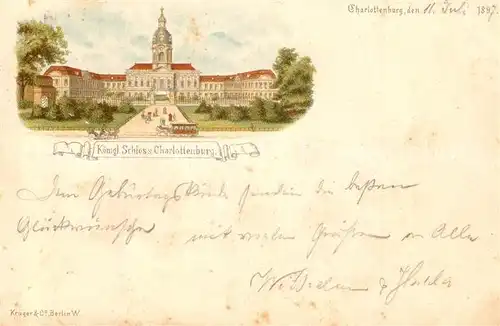 Charlottenburg, den 11. Juli 1897.
Königl. Schloss Charlottenburg.
Dem Geburtstagskinde senden die besten
Glückwünsche
mit vielen Grüßen an Alle
W.
Kruger & Co., Berlin W.